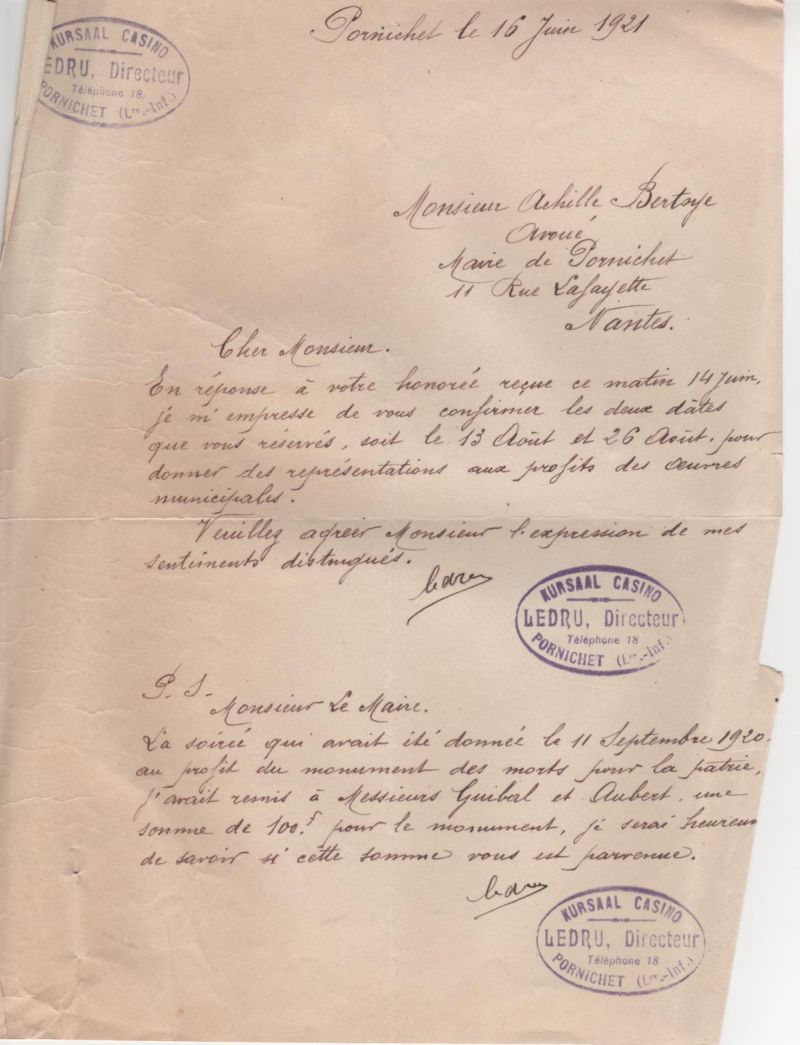 KURSAAL CASINO
LEDRU, Directeur
Téléphone 18
PORNICHET (Lre.-Inf.)
Pornichet le 16 Juin 1921
Monsieur Achille Bertaye
Avoué
Maire de Pornichet
11 Rue Lafayette
Nantes.
Cher Monsieur.
En réponse à votre honorée reçue ce matin 14 Juin,
je m'empresse de vous confirmer les deux dâtes
que vous réservés, soit le 13 Août et 26 Août. pour
donner des représentations aux profits des œuvres
municipales.
Veuillez agréer Monsieur l'expression de mes
sentiments distingués.
Ledru
KURSAAL CASINO
LEDRU, Directeur
Téléphone 18
PORNICHET (Lre.-Inf.)
P. S.
Monsieur Le Maire.
La soirée qui avait été donnée le 11 Septembre 1920.
au profit du monument des morts pour la patrie,
j'avait remis à Messieurs Guibal et Aubert, une
somme de 100.f pour le monument, je serai heureux
de savoir si cette somme vous est parvenue.
Ledru
KURSAAL CASINO
LEDRU, Directeur
Téléphone 18
PORNICHET (Lre.-Inf.)